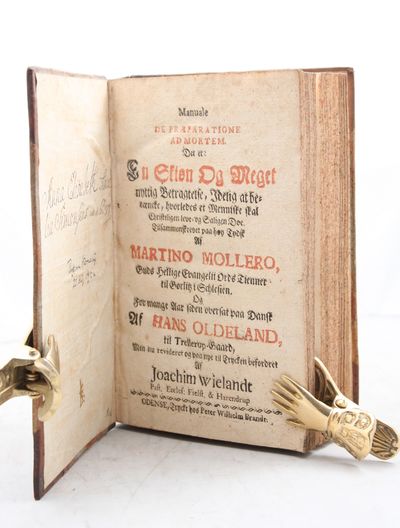 Manuale
DE PRÆPARATIONE
AD MORTEM.
Det er:
En Skiøn Og Meget
nyttig Betragtelse, Idelig at be-
tæncke, hvorledes et Menniske skal
Christeligen leve og Saligen Døe.
Tilsammenskrevet paa høy Tydsk
Af
MARTINO MOLLERO,
Guds Hellige Evangelii Ords Tienner
til Gorlitz i Schlesien.
Og
For mange Aar siden oversat paa Dansk
Af HANS OLDELAND,
til Trellerup-Gaard,
Men nu revideret og paa nye til Trycken befordret
Af
Joachim Wielandt
Past. Eccles: Fielst. & Harendrup
ODENSE, Tryckt hos Peter Wilhelm Brandt.
Anna Elisabeth